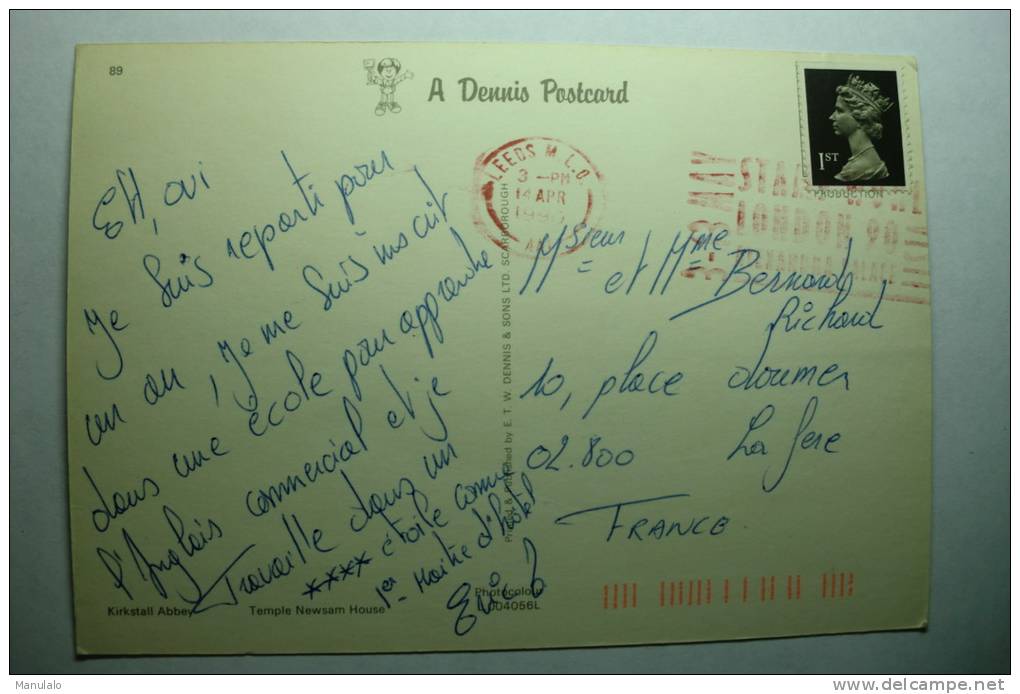 89
A Dennis Postcard
LEEDS M.L.O.
3 - PM
14 APR
1990
1ST
3-8 MAY
STAMP WORLD
LONDON 90
Eh, oui
Je suis reparti pour
un an, Je me suis inscrit
dans une école pour apprendre
l'Anglais commercial et je
Travaille dans un
**** étoile comme
1er Maitre d'hôtel
Eric
Msieur
et Mme Bernard
Richard
10, place doumer
02.800 La fere
FRANCE
Printed & Published by E. T. W. DENNIS & SONS LTD. SCARBOROUGH
Kirkstall Abbey
Temple Newsam House
Photocolour
004056L
PRODUCTION
Manulalo
www.delcampe.net